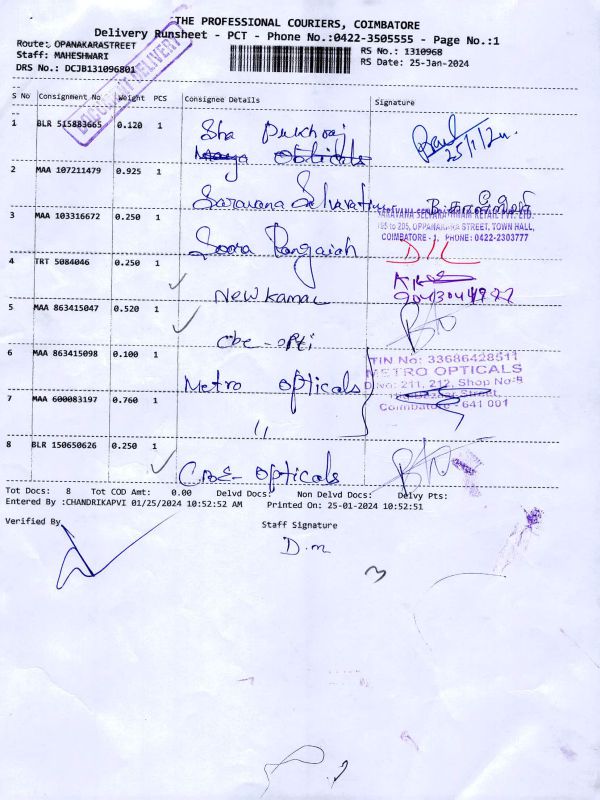 THE PROFESSIONAL COURIERS, COIMBATORE
Delivery Runsheet - PCT - Phone No.:0422-3505555 - Page No.:1
Route: OPANAKARASTREET
RS No.: 1310968
Staff: MAHESHWARI
RS Date: 25-Jan-2024
DRS No.: DCJB131096801
DELIVERY
S No Consignment No Weight PCS Consignee Details Signature
1 BLR 515883665 0.120 1 Sha Pukhraj
Opticals
25/1/24
2 MAA 107211479 0.925 1 Saravana Selvarathnam
SARAVANA SELVARATHNAM RETAIL PVT. LTD.
195 to 205, OPPANAKARA STREET, TOWN HALL,
COIMBATORE - 1. PHONE: 0422-2303777
3 MAA 103316672 0.250 1 Soora Rangaiah
4 TRT 5084046 0.250 1 New kamal
5 MAA 863415047 0.520 1 cbe - opti
6 MAA 863415098 0.100 1 Metro opticals
TIN No: 33686428511
METRO OPTICALS
D.No: 211, 212, Shop No-8
Street,
Coimbatore - 641 001
7 MAA 600083197 0.760 1 "
8 BLR 150650626 0.250 1 CBE- opticals
Tot Docs: 8 Tot COD Amt: 0.00 Delvd Docs: Non Delvd Docs: Delvy Pts:
Entered By :CHANDRIKAPVI 01/25/2024 10:52:52 AM Printed On: 25-01-2024 10:52:51
Verified By
Staff Signature
D.m